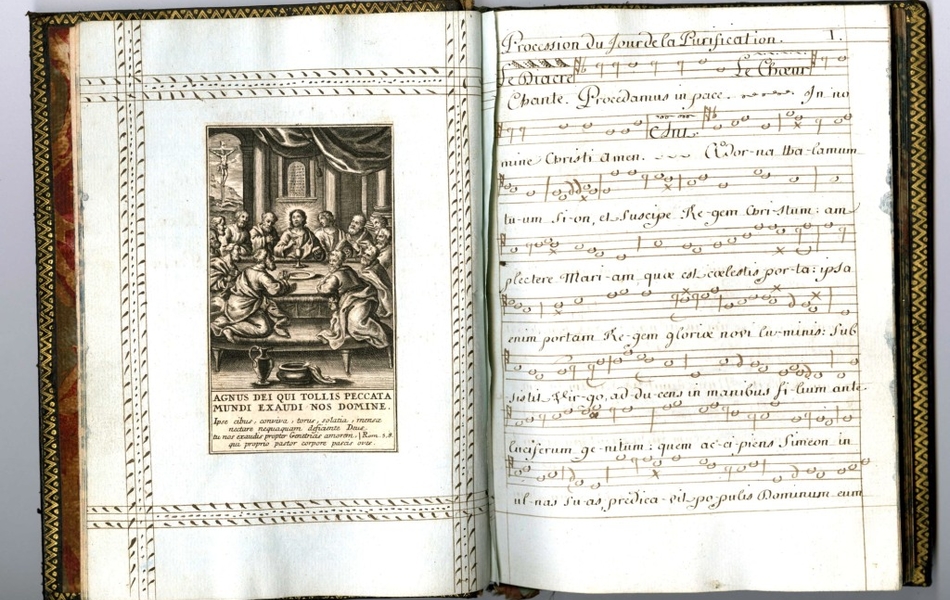 AGNUS DEI QUI TOLLIS PECCATA
MUNDI EXAUDI NOS DOMINE.
Ipse cibus, conviva, torus, solatia, mensæ
nectare nequaquam deficiente Deus,
tu nos exaudis propter Genitricis amorem, Rom. 5,8.
qui proprio pastor corpore pascis oves.
Procession du Jour de la Purification. 1.
Le Diacre Le Chœur
Chante. Procedamus in pace. In no
mine Christi amen. Ador-na tha-lamum
tu-um Si-on, et Suscipe Re-gem Chri-stum: am
plectere Mari-am quæ est cœlestis por-ta: ipsa
enim portam Re-gem gloriæ novi lu-minis: Sub
sistit Vir-go, ad-du-cens in manibus fi-lium ante
Luciferum ge-nitum: quem ac-ci-piens Simeon in
ul-nas su-as, predica-vit po-pulis Dominum eum